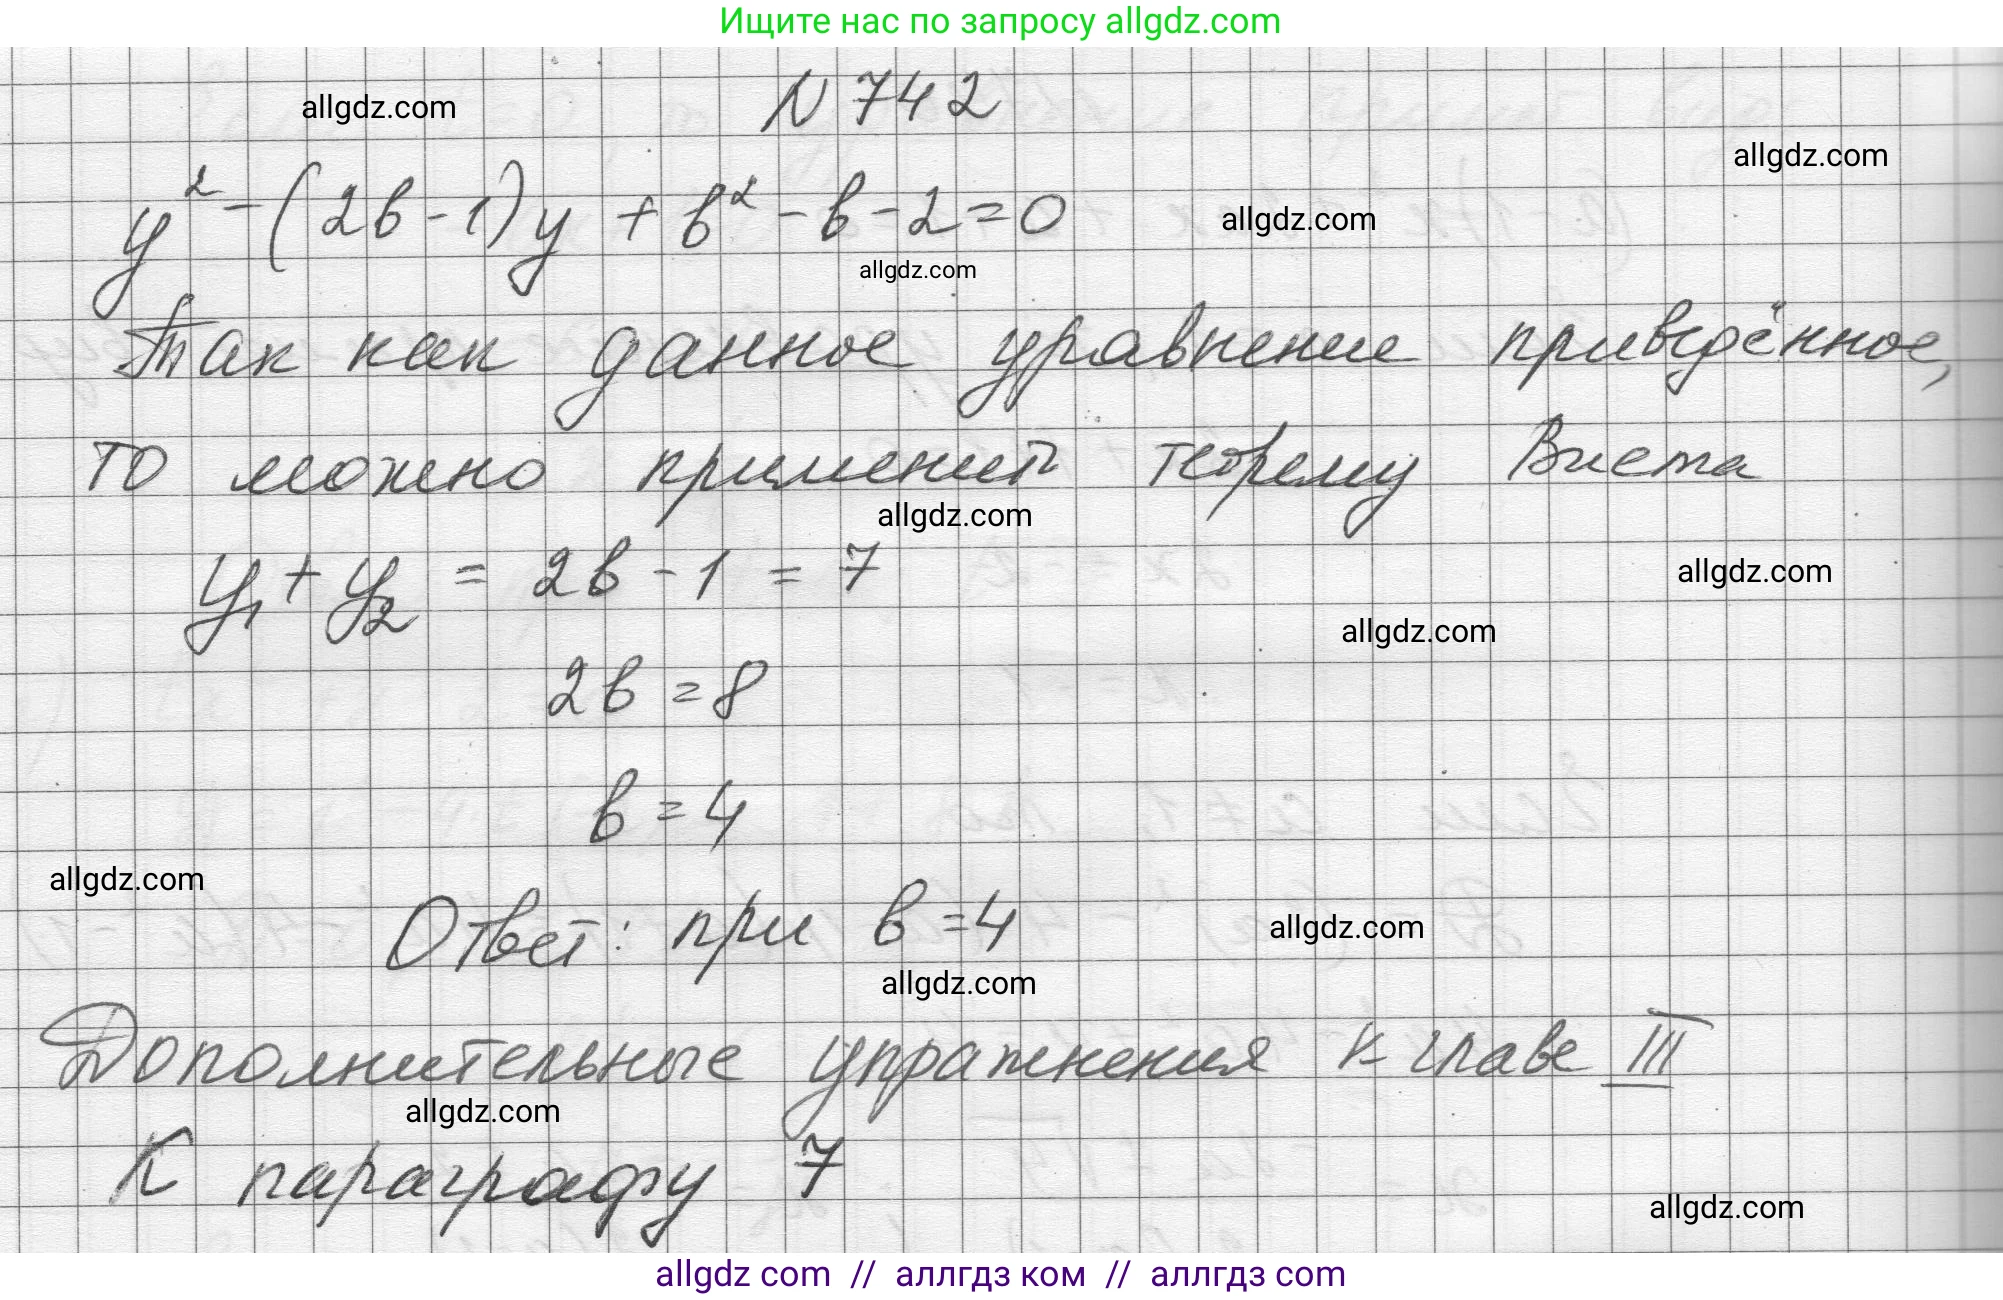 Ищите нас по запросу allgdz.com
N 742
allgdz.com
allgdz.com
y² - (2b - 1)y + b² - b - 2 = 0
allgdz.com
allgdz.com
Так как данное уравнение приведённое,
то можно применить теорему Виета
allgdz.com
y₁ + y₂ = 2b - 1 = 7
allgdz.com
allgdz.com
2b = 8
b = 4
allgdz.com
Ответ: при b = 4
allgdz.com
allgdz.com
Дополнительные упражнения к главе III
allgdz.com
К параграфу 7
allgdz.com
allgdz com // аллгдз ком // аллгдз com